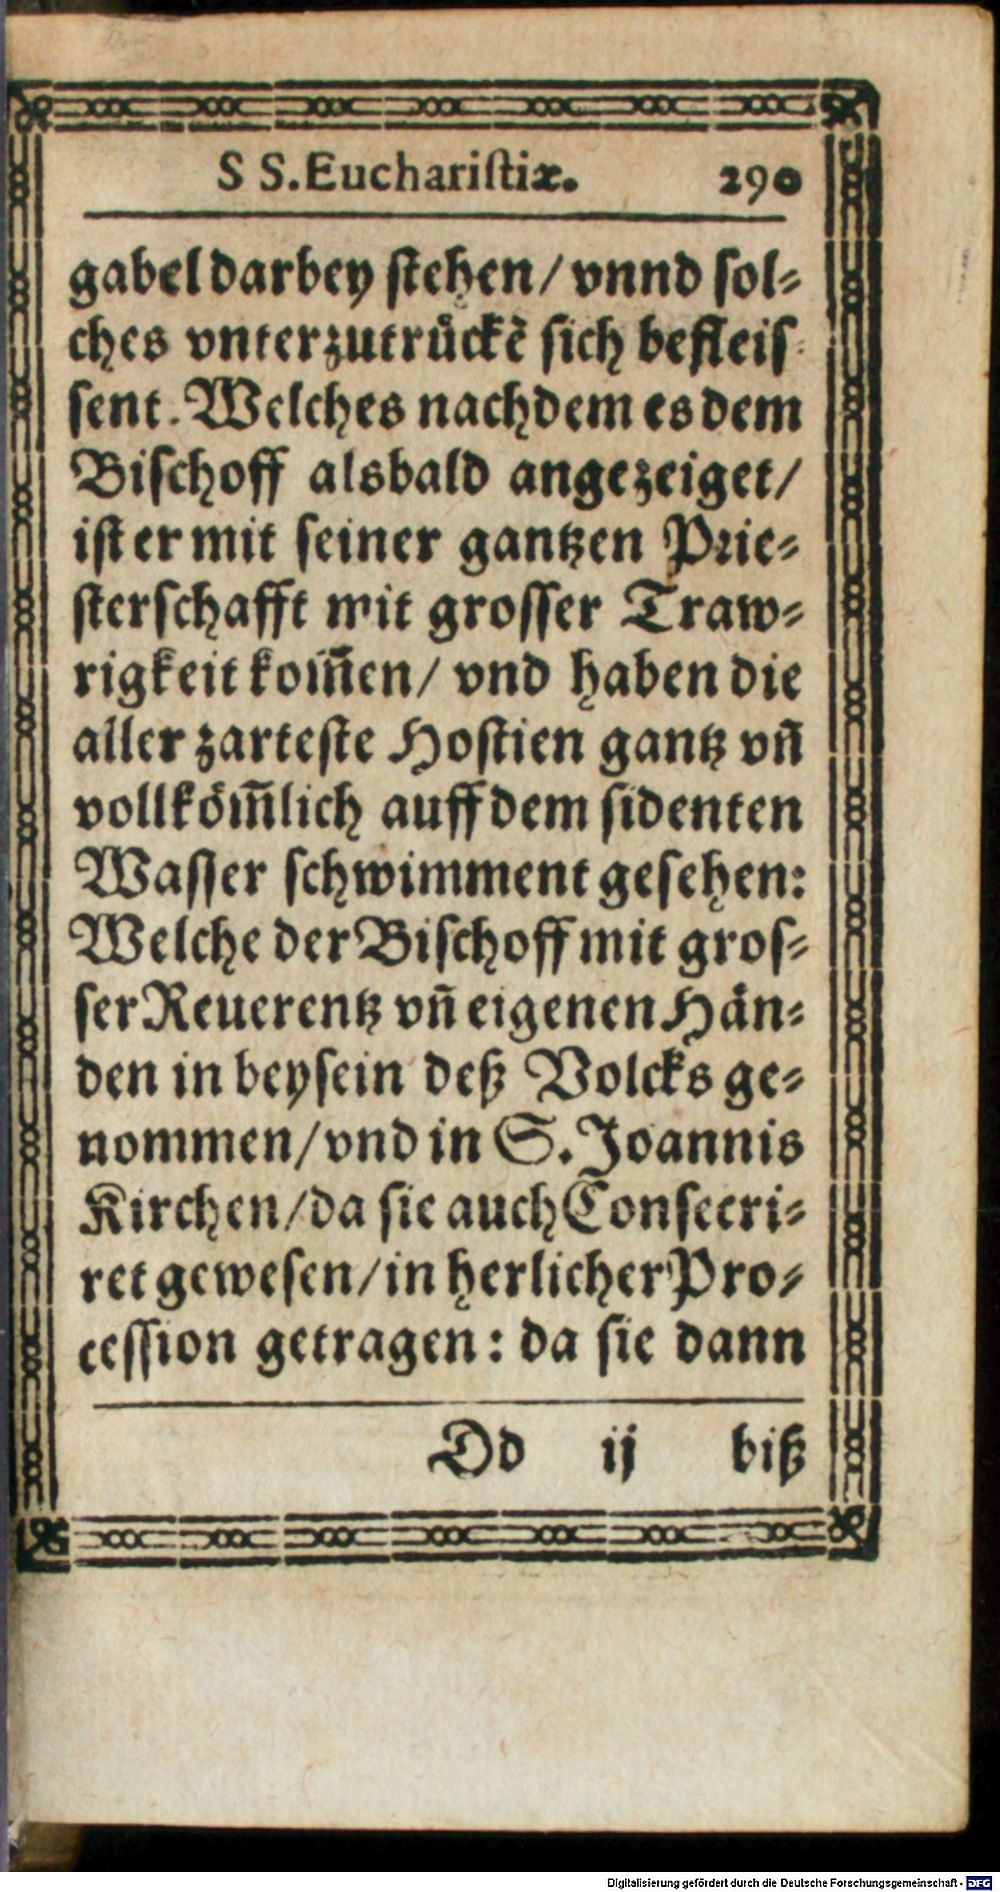 S S. Euchariſtiæ. 290
gabel darbey ſtehen/ vnnd ſol⸗
ches vnterzutruͤckẽ ſich befleiſ
ſent. Welches nachdem es dem
Biſchoff alsbald angezeiget/
iſt er mit ſeiner gantzen Prie⸗
ſterſchafft mit groſſer Traw⸗
rigkeit kom̃en/ vnd haben die
aller zarteſte Hoſtien gantz vñ
vollkoͤm̃lich auff dem ſidenten
Waſſer ſchwimment geſehen:
Welche der Biſchoff mit groſ⸗
ſer Reuerentz vñ eigenen Haͤn⸗
den in beyſein deß Volcks ge⸗
nommen/ vnd in S. Joannis
Kirchen/ da ſie auch Conſecri⸗
ret geweſen/ in herlicher Pro⸗
ceſſion getragen: da ſie dann
Dd ij biß
Digitalisierung gefördert durch die Deutsche Forschungsgemeinschaft - DFG